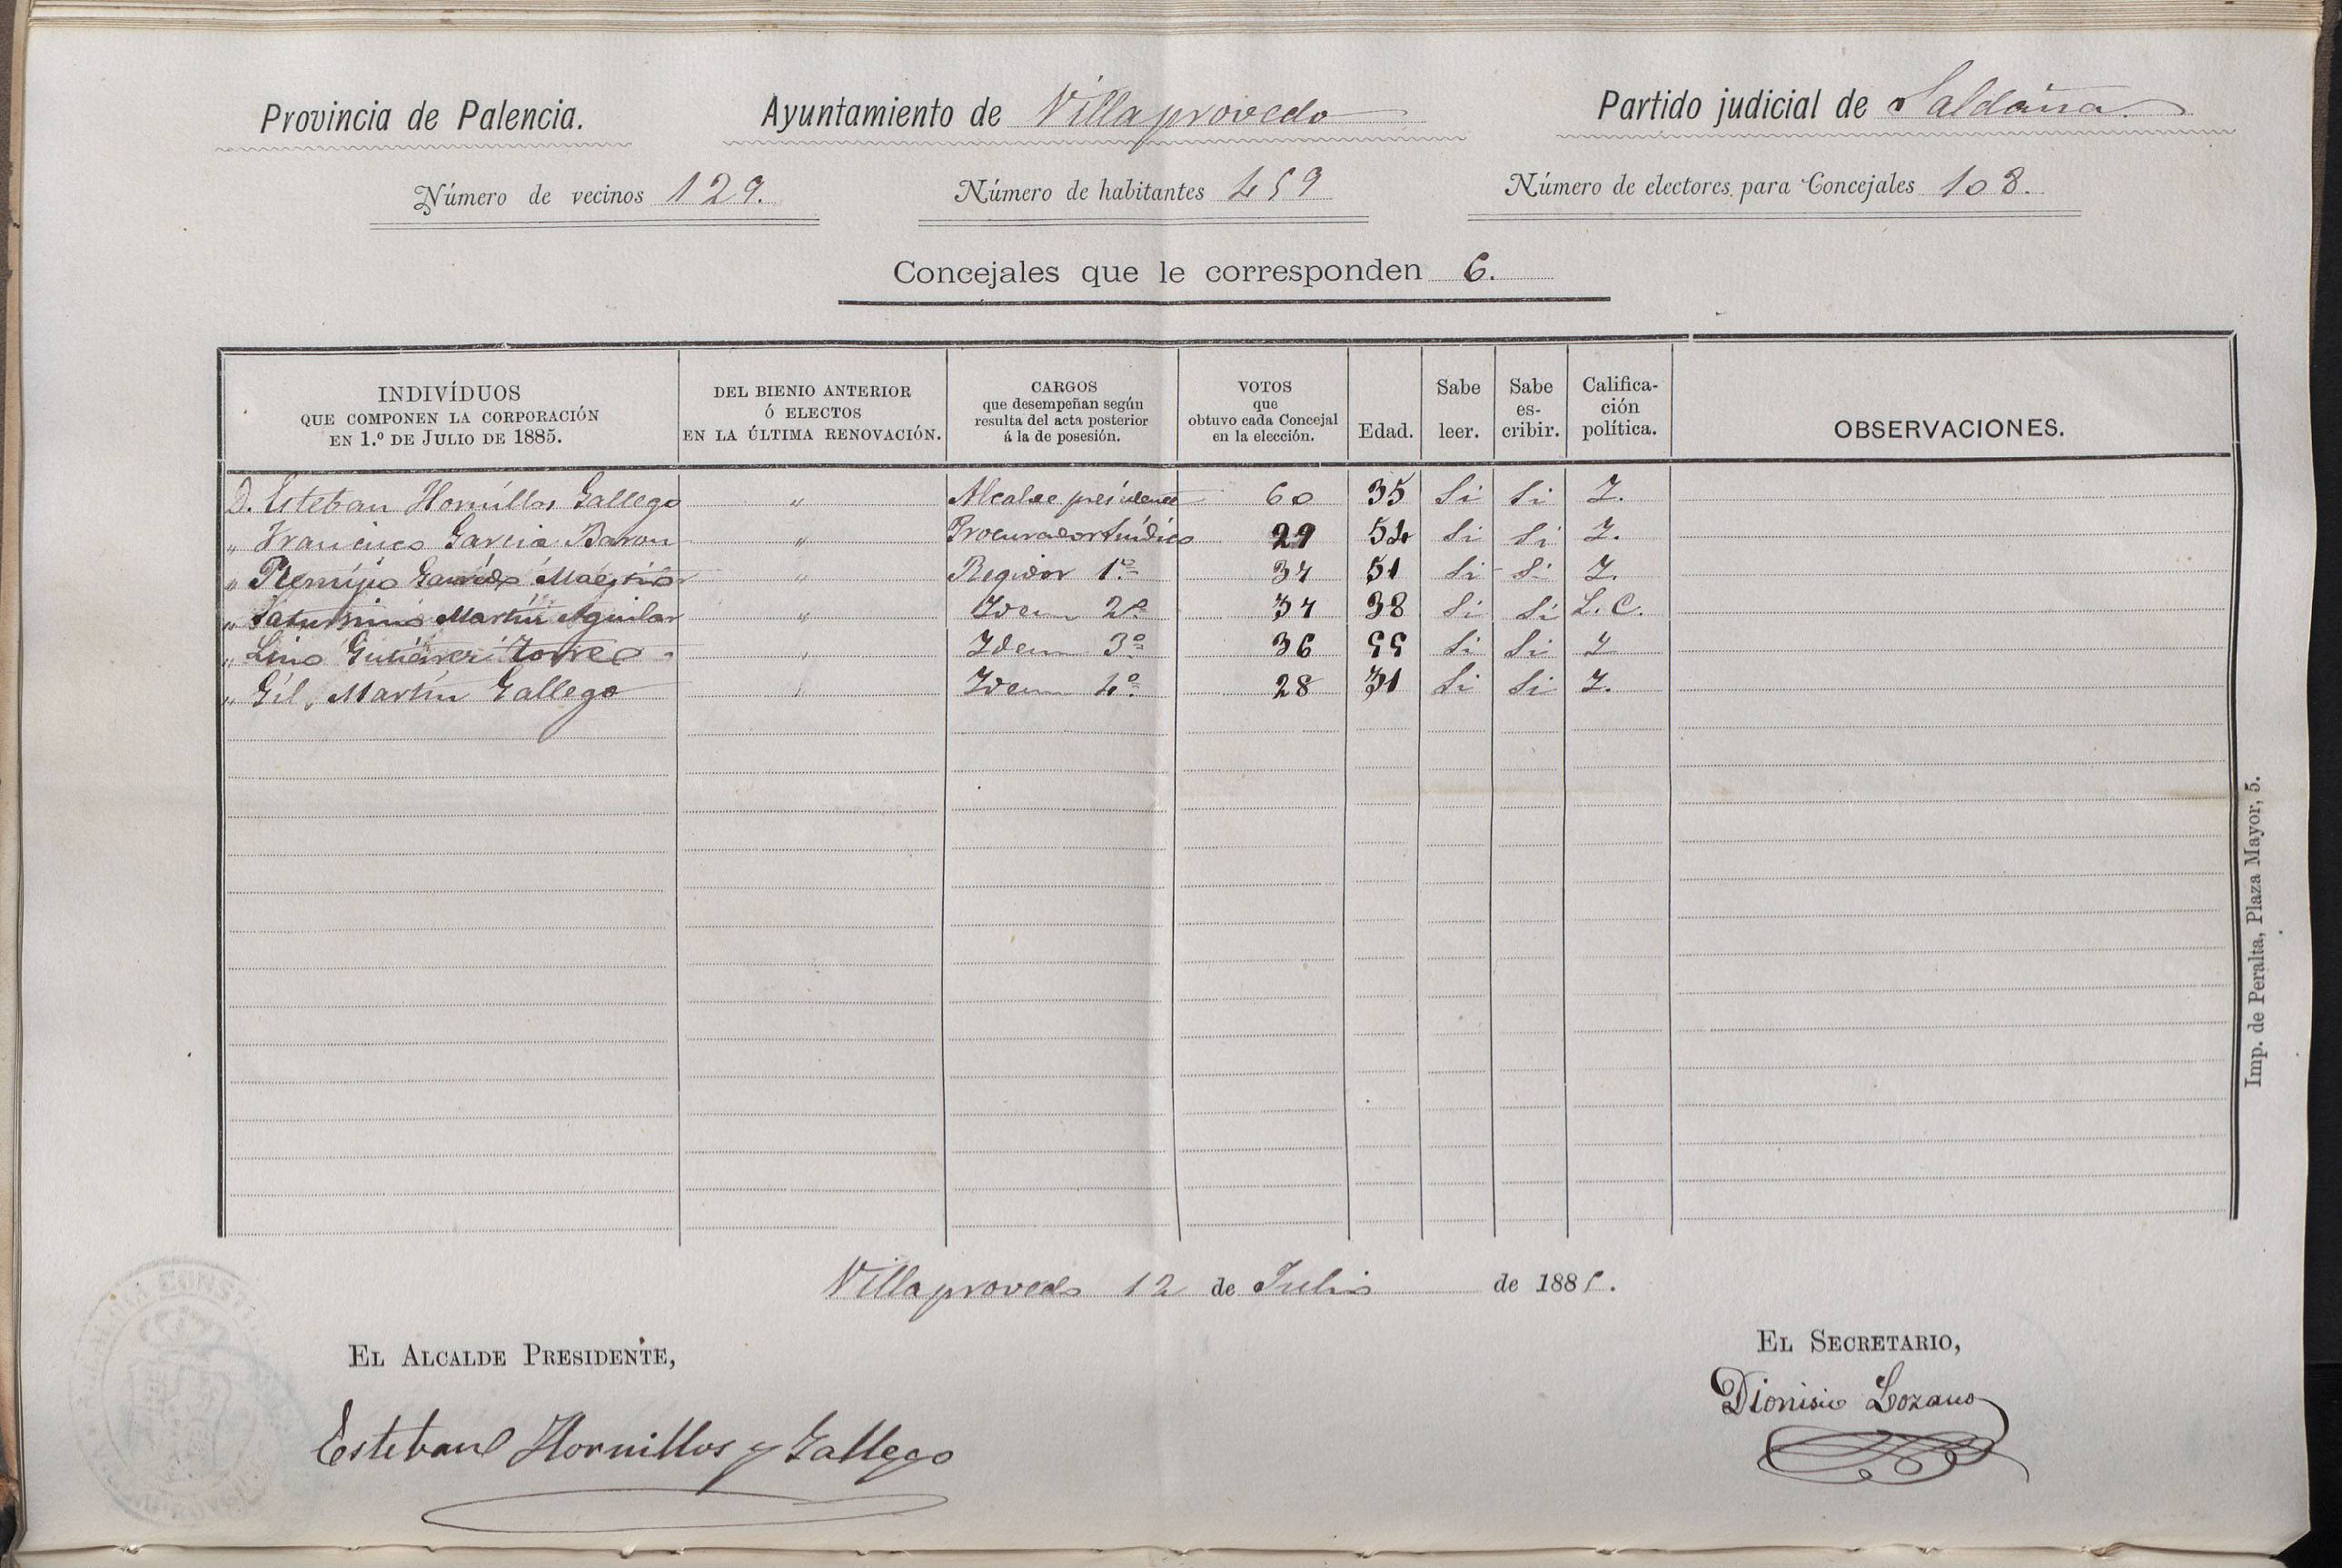 Provincia de Palencia. Ayuntamiento de Villaprovedo Partido judicial de Saldaña
Número de vecinos 129. Número de habitantes 459 Número de electores para Concejales 108.
Concejales que le corresponden 6.
INDIVÍDUOS QUE COMPONEN LA CORPORACIÓN EN 1.º DE JULIO DE 1885. DEL BIENIO ANTERIOR Ó ELECTOS EN LA ÚLTIMA RENOVACIÓN. CARGOS que desempeñan según resulta del acta posterior á la de posesión. VOTOS que obtuvo cada Concejal en la elección. Edad. Sabe leer. Sabe es-cribir. Califica-ción política. OBSERVACIONES.
D. Esteban Hornillos Gallego " Alcalde presidente 60 35 Si Si I.
" Francisco Garcia Baron " Procurador Sindico 29 54 Si Si I.
" Remijio Maestro " Regidor 1º 34 51 Si Si I.
" Saturnino Martin Aguilar " Idem 2º 34 38 Si Si L. C.
" Lino Gutierrez Torres " Idem 3º 36 55 Si Si I
" Gil Martin Gallego " Idem 4º 28 31 Si Si I.
Villaprovedo 12 de Julio de 1885.
EL ALCALDE PRESIDENTE, EL SECRETARIO,
Esteban Hornillos y Gallego Dionisio Lozano
Imp. de Peralta, Plaza Mayor, 5.